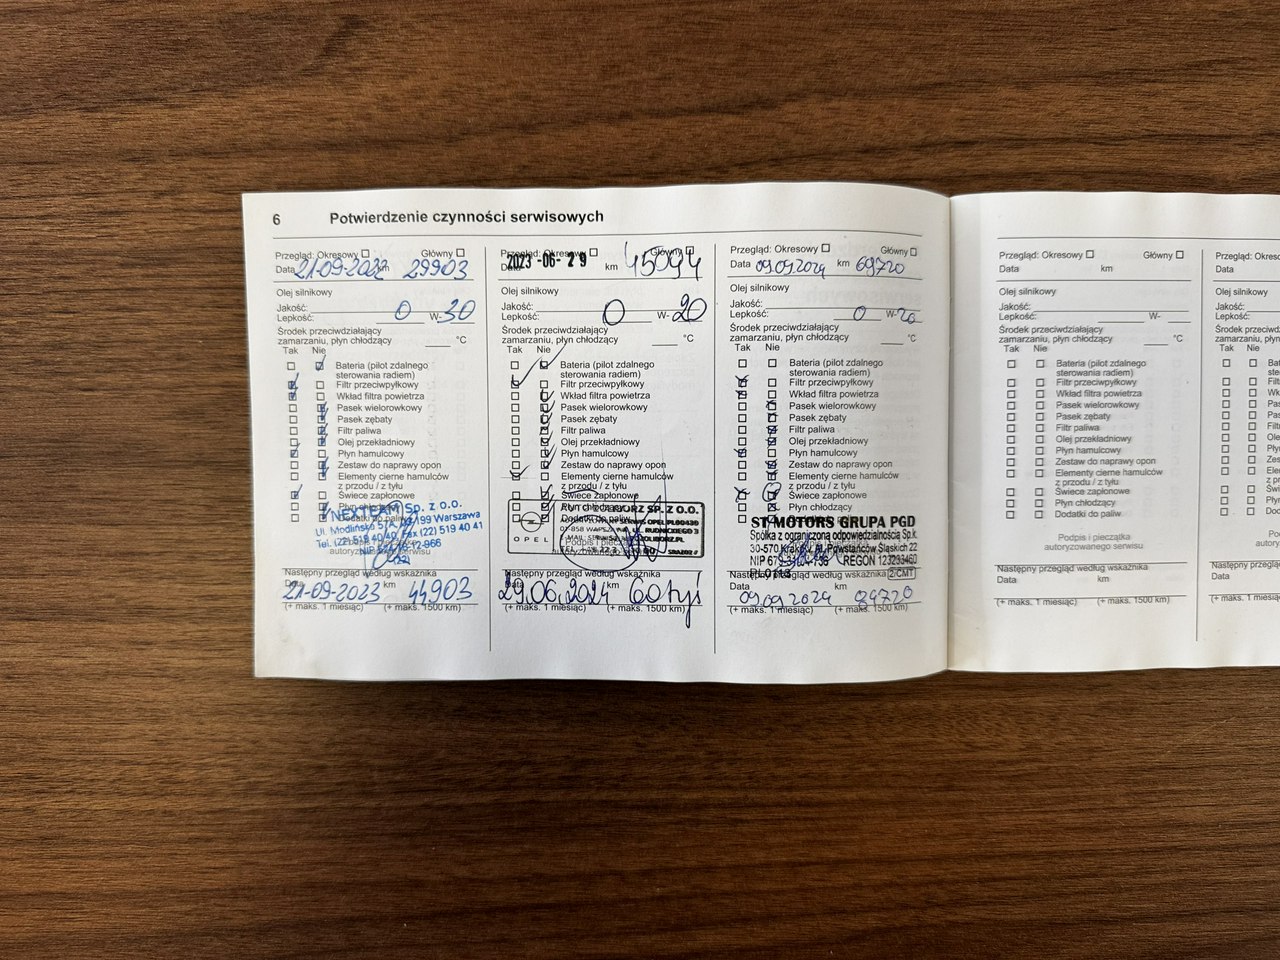 6 Potwierdzenie czynności serwisowych
Przegląd: Okresowy ☐ Główny ☐
Data 21-09-2022 km 29903
Olej silnikowy
Jakość:
Lepkość: 0 W-30
Środek przeciwdziałający
zamarzaniu, płyn chłodzący °C
Tak Nie
Bateria (pilot zdalnego
sterowania radiem)
Filtr przeciwpyłkowy
Wkład filtra powietrza
Pasek wielorowkowy
Pasek zębaty
Filtr paliwa
Olej przekładniowy
Płyn hamulcowy
Zestaw do naprawy opon
Elementy cierne hamulców
z przodu / z tyłu
Świece zapłonowe
Płyn chłodzący
Dodatki do paliw
NEXTEAM Sp. z o.o.
Ul. Modlińska 03-199 Warszawa
Tel. (22) 519 40 40, Fax (22) 519 40 41
Następny przegląd według wskaźnika
Data 21-09-2023 km 44903
(+ maks. 1 miesiąc) (+ maks. 1500 km)
Przegląd: Okresowy ☐ Główny ☐
Data 2023-06-29 km 45094
Olej silnikowy
Jakość:
Lepkość: 0 W-20
Środek przeciwdziałający
zamarzaniu, płyn chłodzący °C
Tak Nie
Bateria (pilot zdalnego
sterowania radiem)
Filtr przeciwpyłkowy
Wkład filtra powietrza
Pasek wielorowkowy
Pasek zębaty
Filtr paliwa
Olej przekładniowy
Płyn hamulcowy
Zestaw do naprawy opon
Elementy cierne hamulców
z przodu / z tyłu
Świece zapłonowe
Płyn chłodzący
Dodatki do paliw
SP. Z O.O.
OPEL
Następny przegląd według wskaźnika
Data 29.06.2024 km 60 tyś
(+ maks. 1 miesiąc) (+ maks. 1500 km)
Przegląd: Okresowy ☐ Główny ☐
Data 09.09.2024 km 69720
Olej silnikowy
Jakość:
Lepkość: 0 W-20
Środek przeciwdziałający
zamarzaniu, płyn chłodzący °C
Tak Nie
Bateria (pilot zdalnego
sterowania radiem)
Filtr przeciwpyłkowy
Wkład filtra powietrza
Pasek wielorowkowy
Pasek zębaty
Filtr paliwa
Olej przekładniowy
Płyn hamulcowy
Zestaw do naprawy opon
Elementy cierne hamulców
z przodu / z tyłu
Świece zapłonowe
Płyn chłodzący
Dodatki do paliw
ST MOTORS GRUPA PGD
Spółka z ograniczoną odpowiedzialnością Sp.k.
30-570 Kraków, Al. Powstańców Śląskich 22
REGON 123293460
2/CM1
Następny przegląd według wskaźnika
Data 09.09.2024 km 84720
(+ maks. 1 miesiąc) (+ maks. 1500 km)
Przegląd: Okresowy ☐ Główny ☐
Data km
Olej silnikowy
Jakość:
Lepkość: W-
Środek przeciwdziałający
zamarzaniu, płyn chłodzący °C
Tak Nie
Bateria (pilot zdalnego
sterowania radiem)
Filtr przeciwpyłkowy
Wkład filtra powietrza
Pasek wielorowkowy
Pasek zębaty
Filtr paliwa
Olej przekładniowy
Płyn hamulcowy
Zestaw do naprawy opon
Elementy cierne hamulców
z przodu / z tyłu
Świece zapłonowe
Płyn chłodzący
Dodatki do paliw
Podpis i pieczątka
autoryzowanego serwisu
Następny przegląd według wskaźnika
Data km
(+ maks. 1 miesiąc) (+ maks. 1500 km)
Data
Olej silnikowy
Jakość:
Lepkość:
Tak Nie
Data